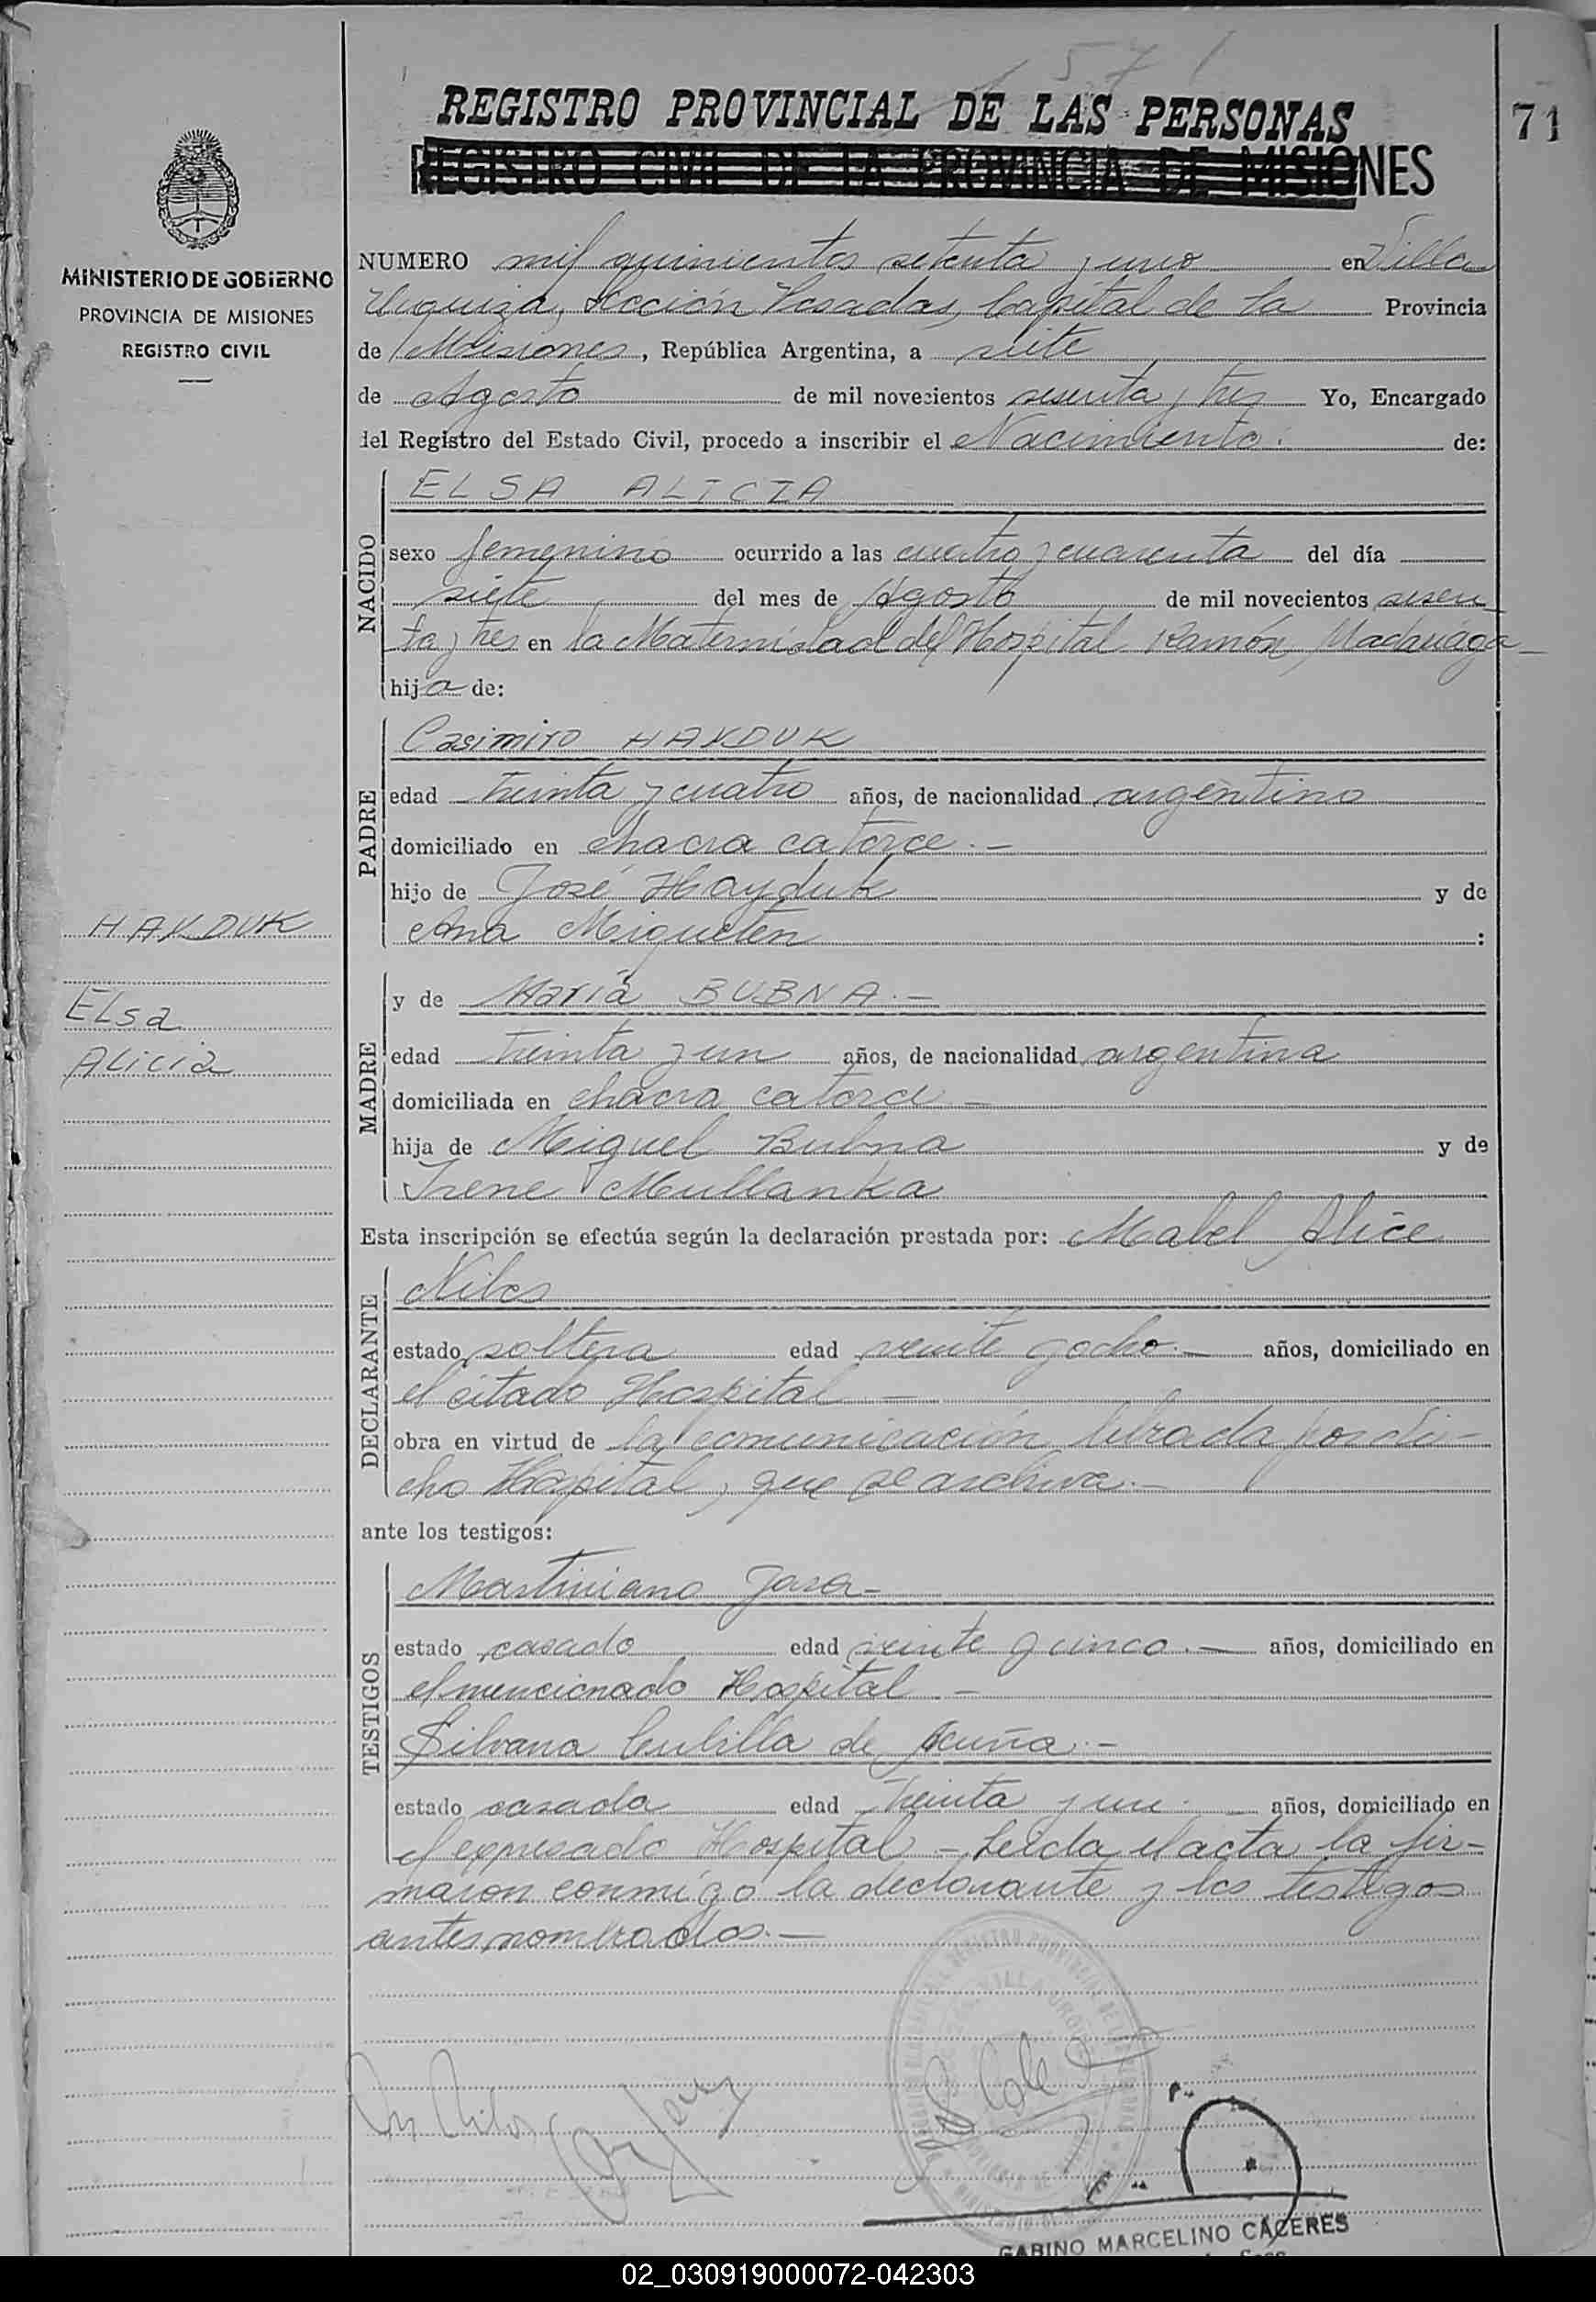 1571
REGISTRO PROVINCIAL DE LAS PERSONAS
71
REGISTRO CIVIL DE LA PROVINCIA DE MISIONES
MINISTERIO DE GOBIERNO
PROVINCIA DE MISIONES
REGISTRO CIVIL
NUMERO mil quinientos setenta y uno en Villa
Urquiza, Sección Posadas, Capital de la Provincia
de Misiones, República Argentina, a siete
de Agosto de mil novecientos sesenta y tres Yo, Encargado
del Registro del Estado Civil, procedo a inscribir el Nacimiento. de:
NACIDO
ELSA ALICIA
sexo femenino ocurrido a las cuatro y cuarenta del día
siete del mes de Agosto de mil novecientos sesen
ta y tres en la Maternidad del Hospital Ramón Madariaga
hija de:
PADRE
Casimiro HAYDUK
edad treinta y cuatro años, de nacionalidad argentino
domiciliado en chacra catorce.-
hijo de José Hayduk y de
Ana Migueten :
HAYDUK
Elsa
Alicia
MADRE
y de María BUBNA.-
edad treinta y un años, de nacionalidad argentina
domiciliada en chacra catorce-
hija de Miguel Bubna y de
Irene Mullanka
Esta inscripción se efectúa según la declaración prestada por: Mabel Alice
DECLARANTE
Niles
estado soltera edad veinte y ocho.- años, domiciliado en
el citado Hospital -
obra en virtud de la comunicación librada por di-
cho Hospital, que se archiva.-
ante los testigos:
TESTIGOS
Martiniano Jara-
estado casado edad veinte y cinco.- años, domiciliado en
el mencionado Hospital -
Silvana Cubilla de Acuña.-
estado casada edad treinta y un.- años, domiciliado en
el expresado Hospital - Leída el acta la fir-
maron conmigo la declarante y los testigos
antes nombrados.-
GABINO MARCELINO CACERES
02_030919000072-042303